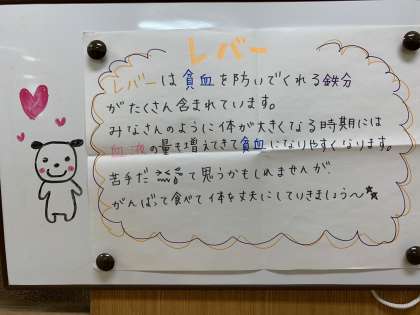 レバー
レバーは貧血を防いでくれる鉄分
がたくさん含まれています。
みなさんのように体が大きくなる時期には
血液の量も増えてきて貧血になりやすくなります。
苦手だ て思うかもしれませんが、
がんばって食べて体を丈夫にしていきましょう〜